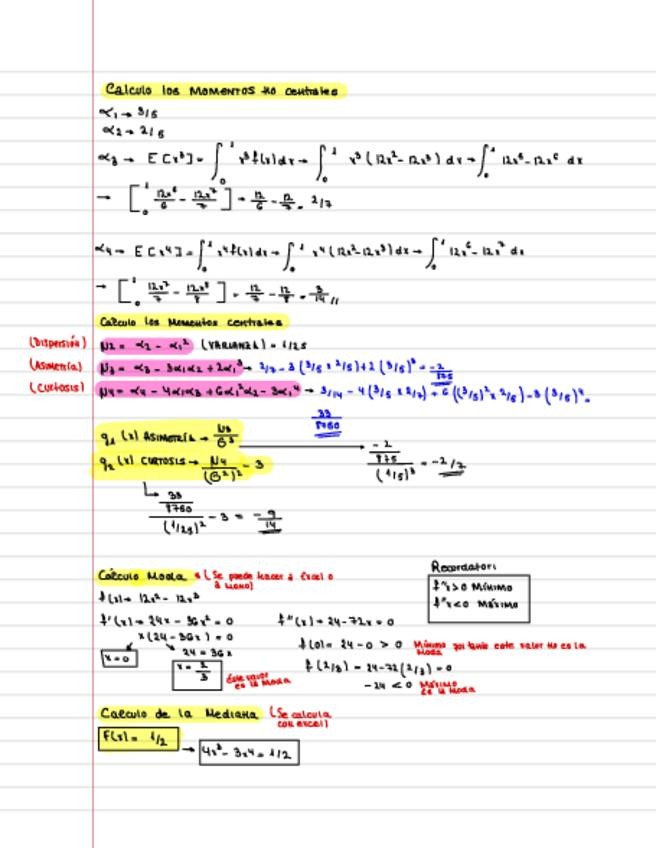 Calculo los MOMENTOS no centrales
α₁ → 3/5
α₂ → 2/5
α₃ → E[x³] = ∫₀¹ x³ f(x) dx → ∫₀¹ x³ (12x² - 12x³) dx → ∫₀¹ 12x⁵ - 12x⁶ dx
→ [₀¹ 12x⁶/6 - 12x⁷/7] → 12/6 - 12/7 = 2/7
α₄ → E[x⁴] = ∫₀¹ x⁴ f(x) dx → ∫₀¹ x⁴ (12x² - 12x³) dx → ∫₀¹ 12x⁶ - 12x⁷ dx
→ [₀¹ 12x⁷/7 - 12x⁸/8] = 12/7 - 12/8 = 3/14 //
Calculo los Momentos centrales
(Dispersión) µ2 = α₂ - α₁² (VARIANZA) = 1/25
(Asimetría) µ3 = α₃ - 3α₁α₂ + 2α₁³ → 2/7 - 3 (3/5 x 2/5) + 2 (3/5)³ = -2/875
(Curtosis) µ4 = α₄ - 4α₁α₃ + 6α₁²α₂ - 3α₁⁴ → 3/14 - 4 (3/5 x 2/7) + 6 ((3/5)² x 2/5) - 3 (3/5)⁴ =
33/8750
g₁ (x) ASIMETRÍA → µ3/σ³ → (-2/875)/(1/5)³ = -2/7
g₂ (x) CURTOSIS → µ4/(σ²)² - 3
(33/8750)/(1/25)² - 3 = -9/14
Cálculo Moda * (Se puede hacer a Excel o a mano)
Recordatori:
f''x>0 Mínimo
f''x<0 Máximo
f(x) = 12x² - 12x³
f'(x) = 24x - 36x² = 0 f''(x) = 24 - 72x = 0
x(24 - 36x) = 0 f(0) = 24 - 0 > 0 Mínimo por tanto este valor no es la moda
x = 0 24 = 36x f(2/3) = 24 - 72(2/3) = 0
x = 2/3 Este valor es la moda -24 < 0 Máximo es la moda
Calculo de la Mediana (Se calcula con excel)
F(x) = 1/2 → 4x³ - 3x⁴ = 1/2